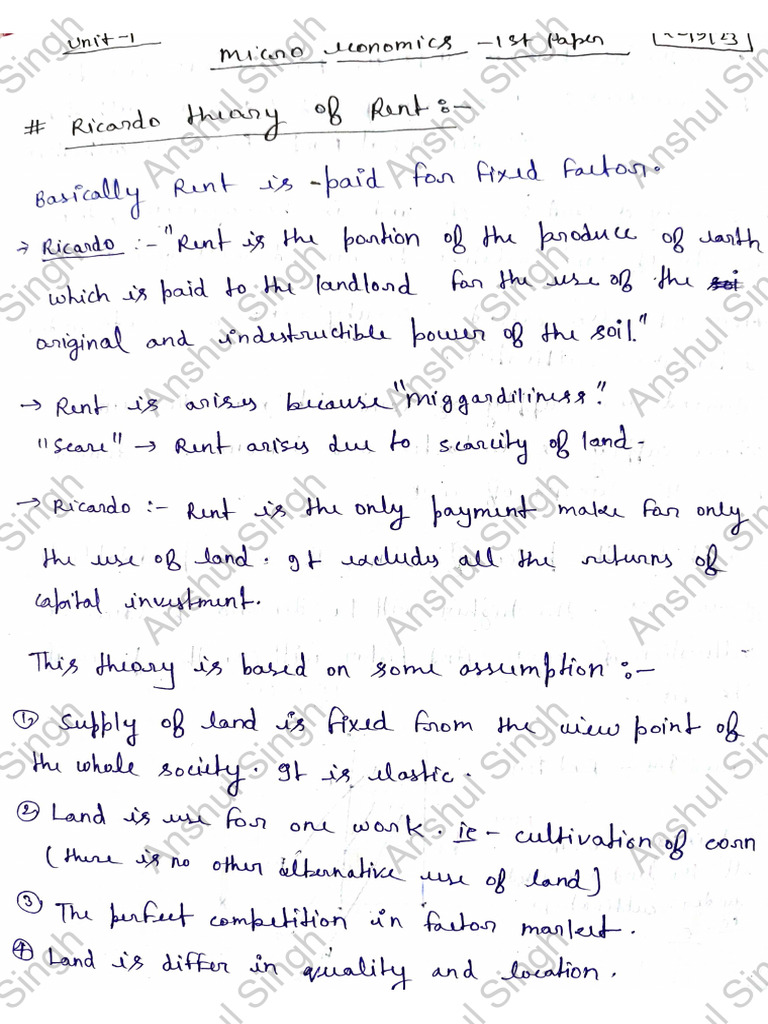 Unit-1
Micro economics - 1st Paper
# Ricardo theary of Rent :-
Basically Rent is paid for fixed factor.
→ Ricardo :- "Rent is the portion of the produce of earth
which is paid to the landlord for the use of the soi
original and indestructible power of the soil."
→ Rent is arises because "Miggardiliness".
"Scare" → Rent arises due to scarcity of land-
→ Ricardo :- Rent is the only payment make for only
the use of land. It excludes all the returns of
capital investment.
This theary is based on some assumption :-
① Supply of land is fixed from the view point of
the whole society. It is elastic.
② Land is use for one work. ie - cultivation of corn
(there is no other alternative use of land)
③ The perfect competition in factor market.
④ Land is differ in quality and location.
Anshul Singh